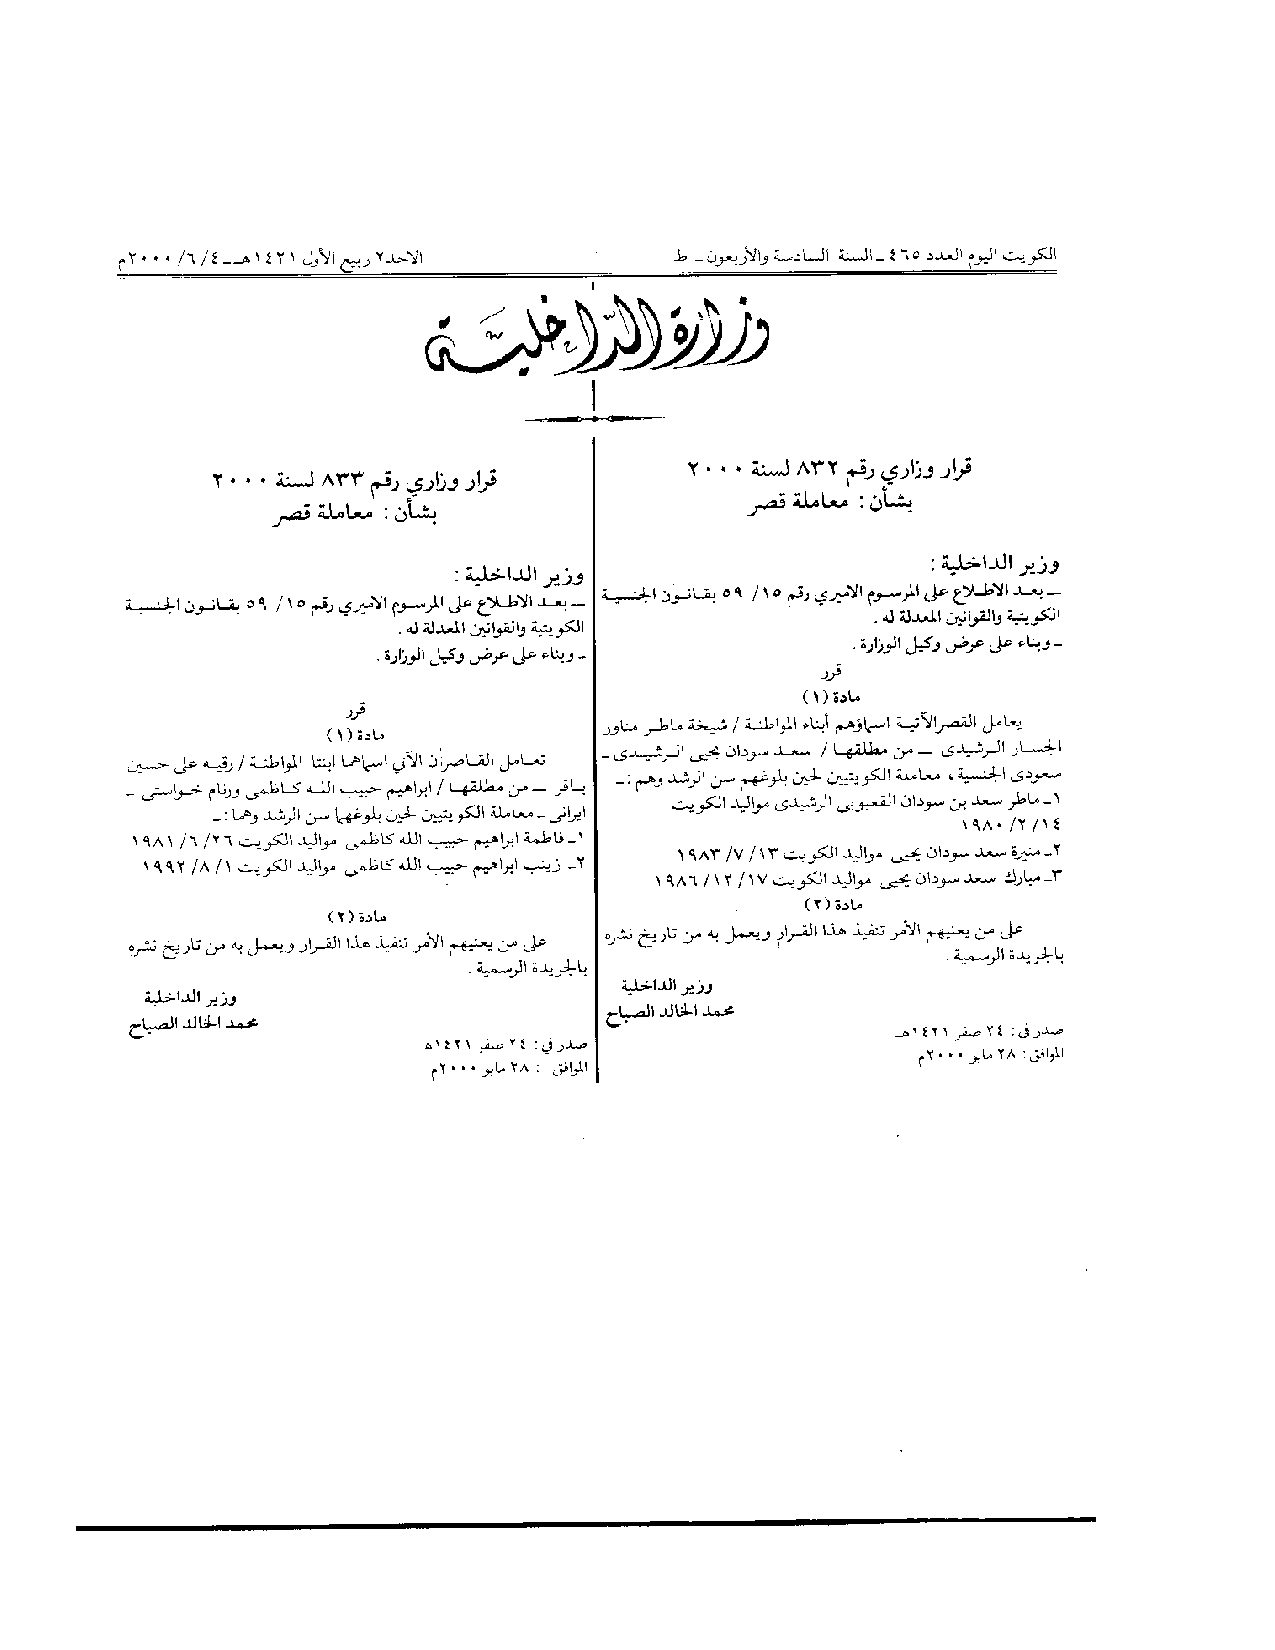 الكويت اليوم العدد ٤٦٥ ـ السنة السادسة والأربعون ـ ط
الاحد ٢ ربيع الأول ١٤٢١هـ ـ ٤/ ٦/ ٢٠٠٠م
وزارة الداخلية
قرار وزاري رقم ٨٣٢ لسنة ٢٠٠٠
بشأن : معاملة قصر
وزير الداخلية :
ـ بعد الاطلاع على المرسوم الاميري رقم ١٥/ ٥٩ بقانون الجنسية
الكويتية والقوانين المعدلة له .
ـ وبناء على عرض وكيل الوزارة .
قرر
مادة (١)
يعامل القصر الآتية اسماؤهم أبناء المواطنة / شيخة ماطر مناور
الجسار الرشيدى ـ من مطلقها / سعد سودان يحيى الرشيدى ـ
سعودى الجنسية ، معاملة الكويتيين لحين بلوغهم سن الرشد وهم : ـ
١ـ ماطر سعد بن سودان القعبوبى الرشيدى مواليد الكويت
١٤/ ٢/ ١٩٨٠
٢ـ منيرة سعد سودان يحيى مواليد الكويت ١٣/ ٧/ ١٩٨٣
٣ـ مبارك سعد سودان يحيى مواليد الكويت ١٧/ ١٢/ ١٩٨٦
مادة (٢)
على من يعنيهم الأمر تنفيذ هذا القرار ويعمل به من تاريخ نشره
بالجريدة الرسمية .
وزير الداخلية
محمد الخالد الصباح
صدر في : ٢٤ صفر ١٤٢١هـ
الموافق : ٢٨ مايو ٢٠٠٠م
قرار وزاري رقم ٨٣٣ لسنة ٢٠٠٠
بشأن : معاملة قصر
وزير الداخلية :
ـ بعد الاطلاع على المرسوم الاميري رقم ١٥/ ٥٩ بقانون الجنسية
الكويتية والقوانين المعدلة له .
ـ وبناء على عرض وكيل الوزارة .
قرر
مادة (١)
تعامل القاصرأن الآتي اسماهما ابنتا المواطنة / رقيه على حسين
باقر ـ من مطلقها / ابراهيم حبيب الله كاظمى ورنام خواستى ـ
ايرانى ـ معاملة الكويتيين لحين بلوغهما سن الرشد وهما : ـ
١ـ فاطمة ابراهيم حبيب الله كاظمى مواليد الكويت ٢٦/ ٦/ ١٩٨١
٢ـ زينب ابراهيم حبيب الله كاظمى مواليد الكويت ١/ ٨/ ١٩٩٢
مادة (٢)
على من يعنيهم الأمر تنفيذ هذا القرار ويعمل به من تاريخ نشره
بالجريدة الرسمية .
وزير الداخلية
محمد الخالد الصباح
صدر في : ٢٤ صفر ١٤٢١هـ
الموافق : ٢٨ مايو ٢٠٠٠م